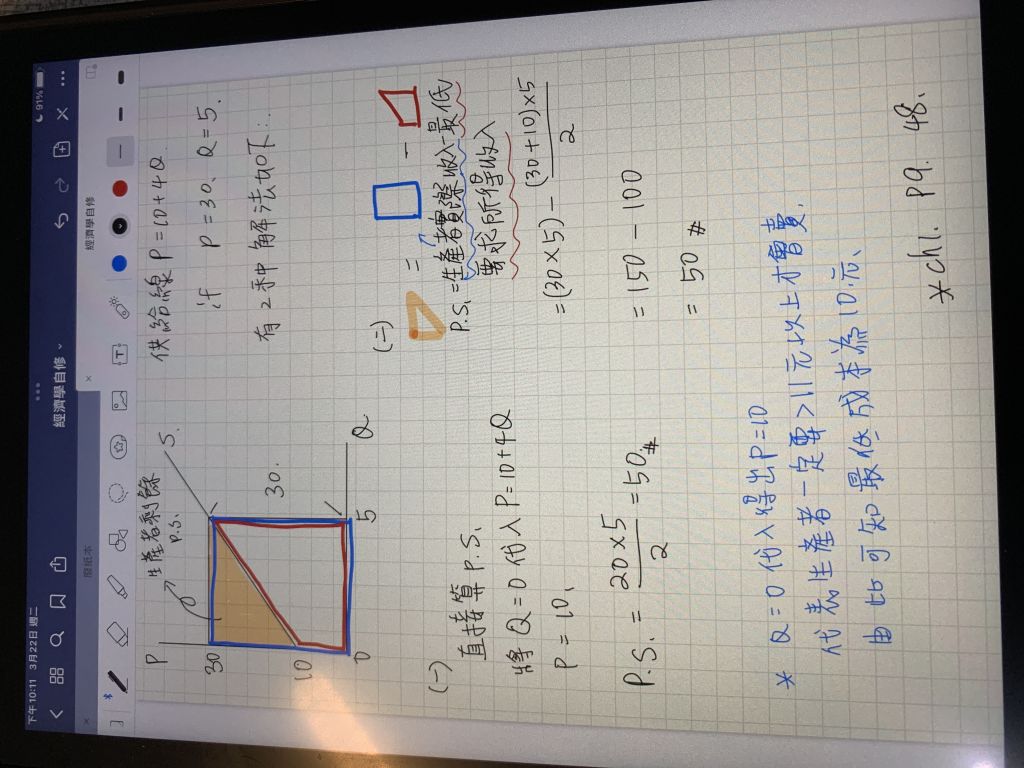 下午10:11 3月22日 週二
91%
經濟學自修
廢紙本
經濟學自修
供給線 P=10+4Q
if P=30、Q=5.
有2種解法如下:.
P
生產者剩餘
P.S.
S.
30
30.
10
0
5
Q
(一)
直接算P.S.
將Q=0代入P=10+4Q
P=10.
P.S. = 20×5 / 2 = 50#
(二)
= -
P.S.=生產者實際收入-最低
要求所得收入
=(30×5) - (30+10)×5 / 2
= 150 - 100
= 50 #
* Q=0代入得出P=10
代表生產者一定要>11元以上才會賣.
由此可知最低成本為10元.
*ch1. P9. 48.